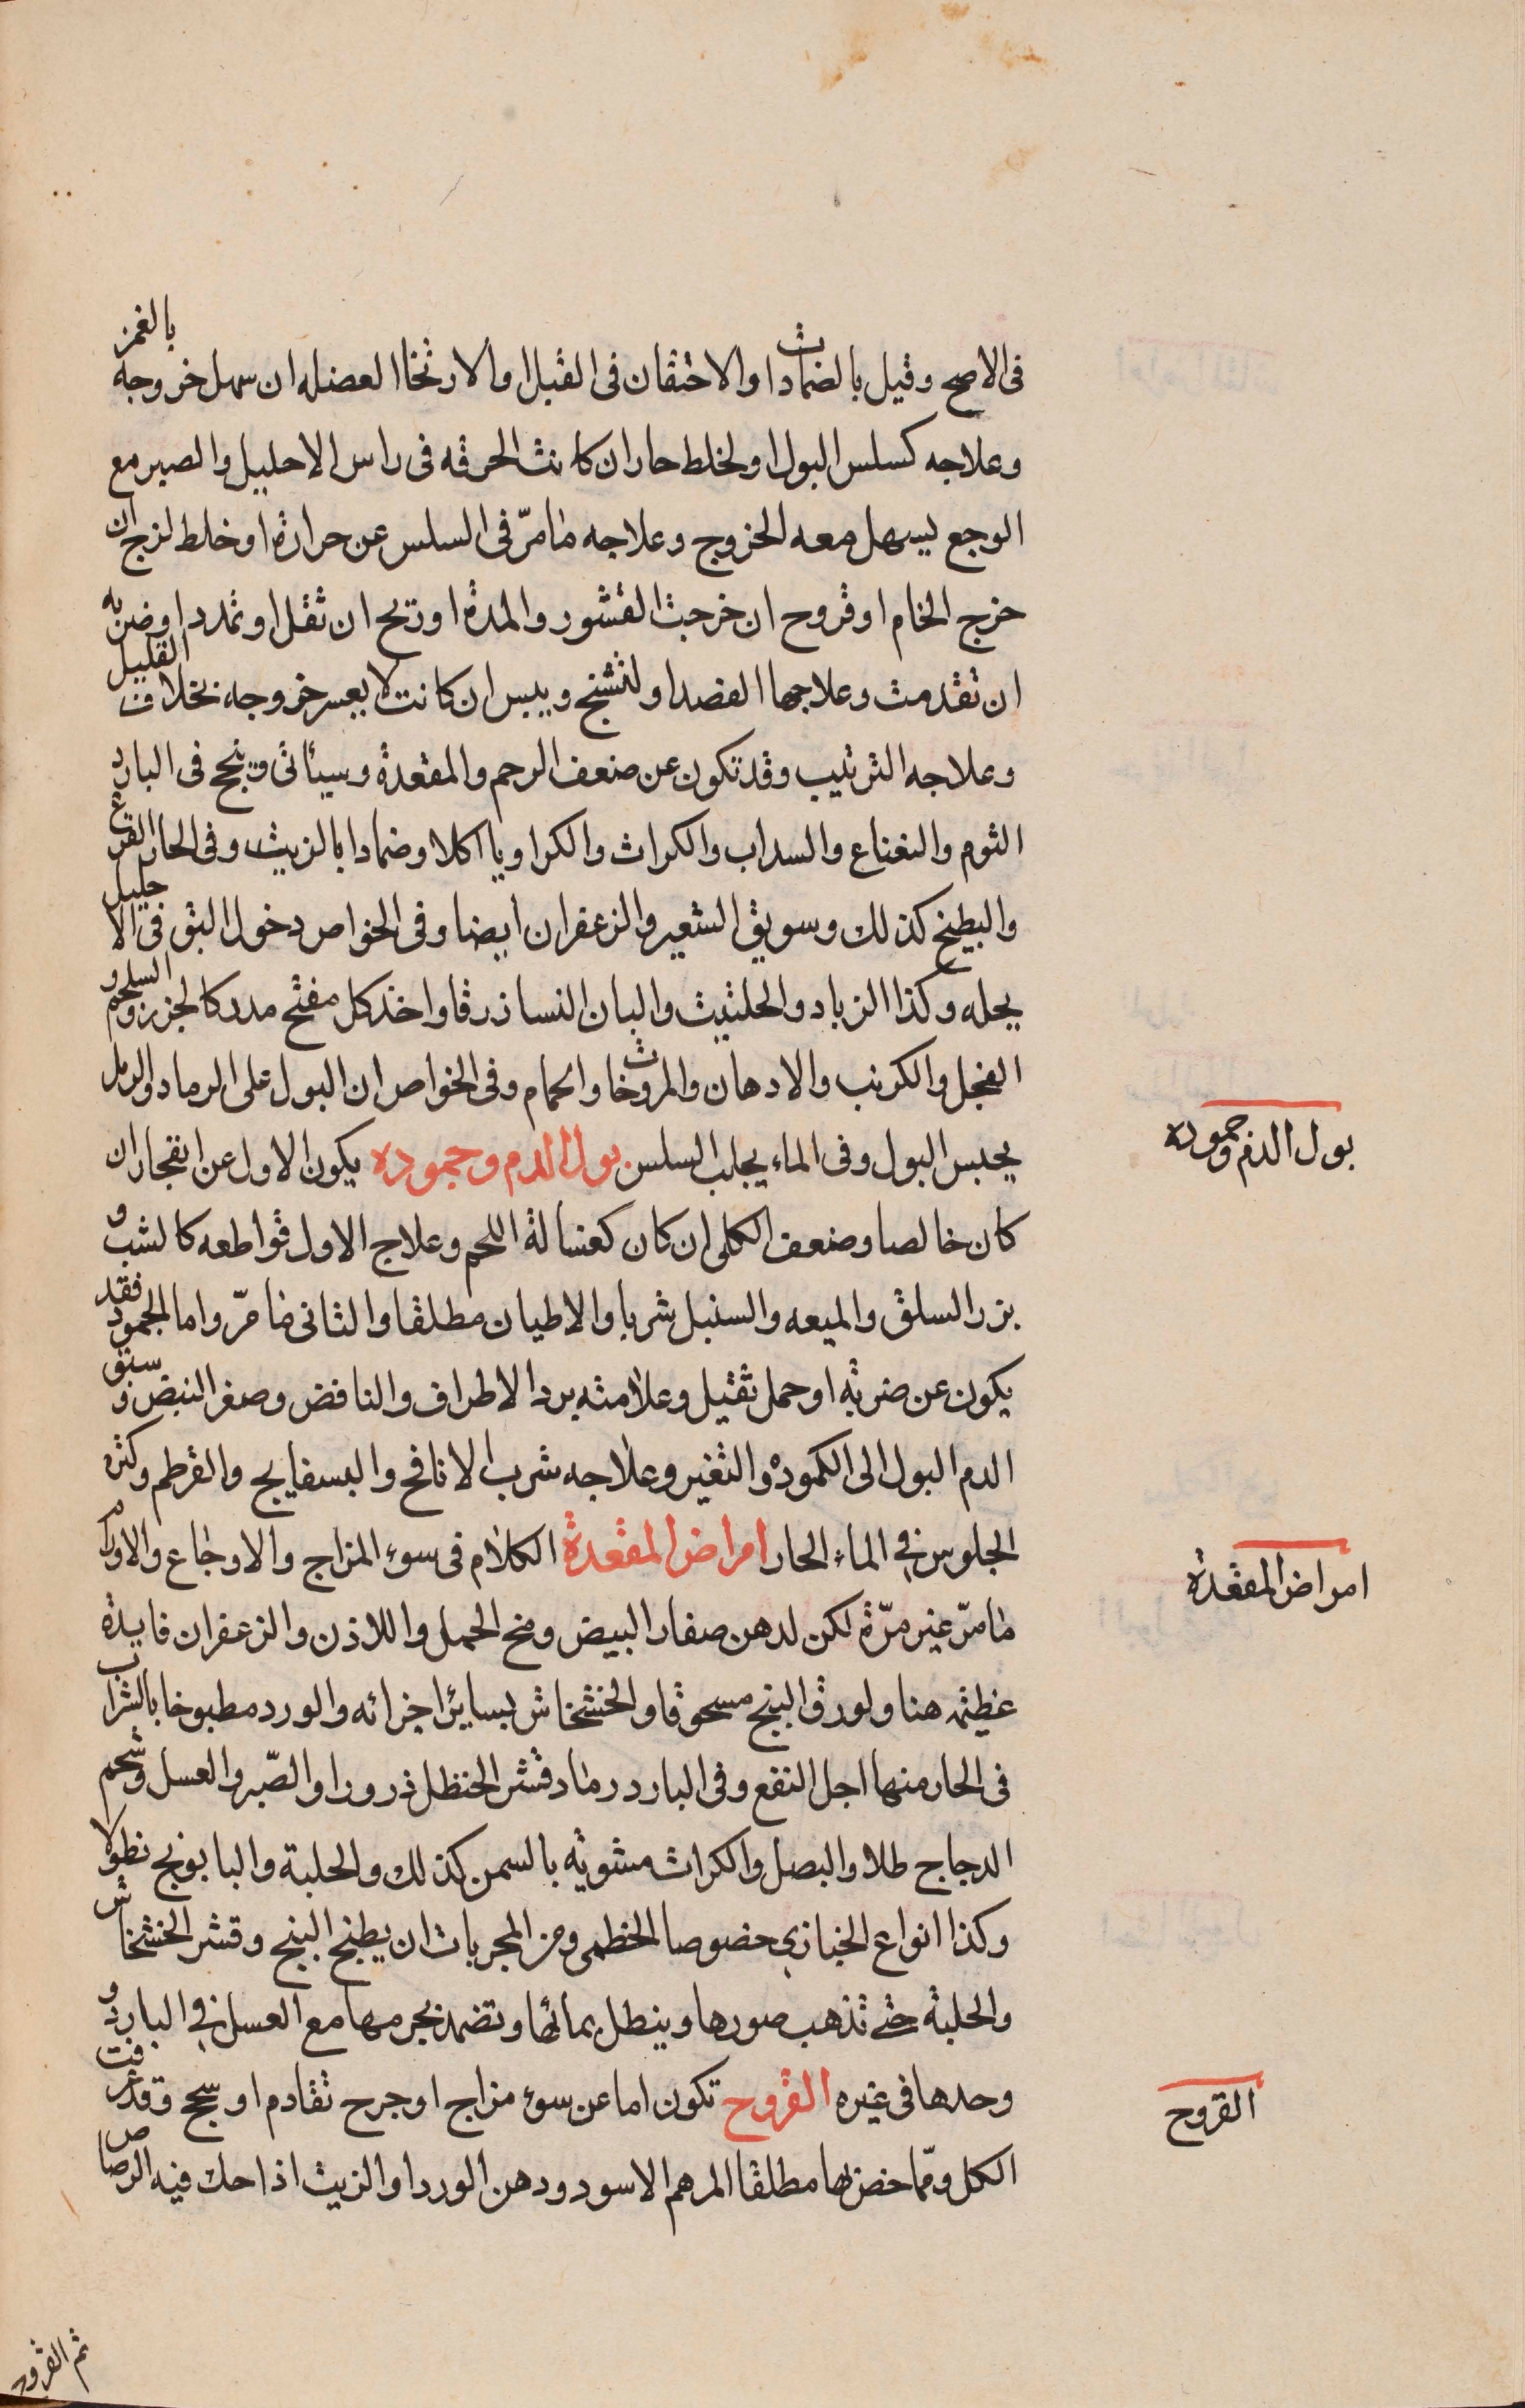 فى الاصح وقيل بالضمادات والاحتقان فى القبل اوالارتخا العضله ان سهل خروجه بالغمز
وعلاجه كسلس البول او لخلط حار ان كانت الحرقه فى راس الاحليل والصبر مع
الوجع ليسهل معه الخروج وعلاجه مامرّ فى السلس عن حرارة او خلط لزج ان
خرج الخام او قروح ان خرجت القشور والمدة او ريح ان ثقل او تمدد او ضربه
ان تقدمت وعلاجها الفصد او لتشنج ويبس ان كانت لا يعسر خروجه بخلاف القليل
وعلاجه الترتيب وقد تكون عن ضعف الرحم والمقعدة وسيأتى وينجح فى البارد
الثوم والنعناع والسداب والكراث والكراويا اكلا وضمادا بالزيت وفى الحار القرع
والبطيخ كذلك وسويق الشعير والزعفران ايضا وفى الخواص دخول البق فى الاحليل
يحله وكذا الزباد والحلتيت والبان النسا زرقا واخذ كل مفتح مدر كالجزر والسلجم و
الفجل والكرنب والادهان والمروخات والحمام وفى الخواص ان البول على الرماد والرمل
يحبس البول وفى الماء يجلب السلس بول الدم وجموده يكون الاول عن انفجار ان
كان خالصا وضعف الكلى ان كان كغسالة اللحم وعلاج الاول قواطعه كالشب و
بزر السلق والميعه والسنبل شربا والاطيان مطلقا والثانى مامرّ واما الجمود فقد
يكون عن ضربة او حمل ثقيل وعلامته برد الاطراف والنافض وصغر النبض وسبق
الدم البول الى الكمودة والتغير وعلاجه شرب الانافح والبسفايج والقرطم وكثرة
الجلوس فى الماء الحار امراض المقعدة الكلام فى سوء المزاج والاوجاع والاورام
مامرّ غير مرّة لكن لدهن صفار البيض ومخ الجمل واللاذن والزعفران فايدة
عظيمة هنا ولورق البنج مسحوقا والخشخاش بساير اجزائه والورد مطبوخا بالشراب
فى الحار منها اجل النفع وفى البارد رماد قشر الحنظل ذرورا والصّبر والعسل وشحم
الدجاج طلا والبصل والكراث مشوية بالسمن كذلك والحلبة والبابونج نطولا
وكذا انواع الخبازى خصوصا الخطمى ومن المجربات ان يطبخ البنج وقشر الخشخاش
والحلبة حتى تذهب صورها وينطل بمائها وتضمد بجرمها مع العسل فى البارد و
وحدها فى غيره القروح تكون اما عن سوء مزاج او جرح تقادم او سحج وقد عرفت
الكل ومما خض بها مطلقا المرهم الاسود ودهن الورد او الزيت اذا حك فيه الرصاص
بول الدم وجموده
امراض المقعدة
القروح
ثم القروح